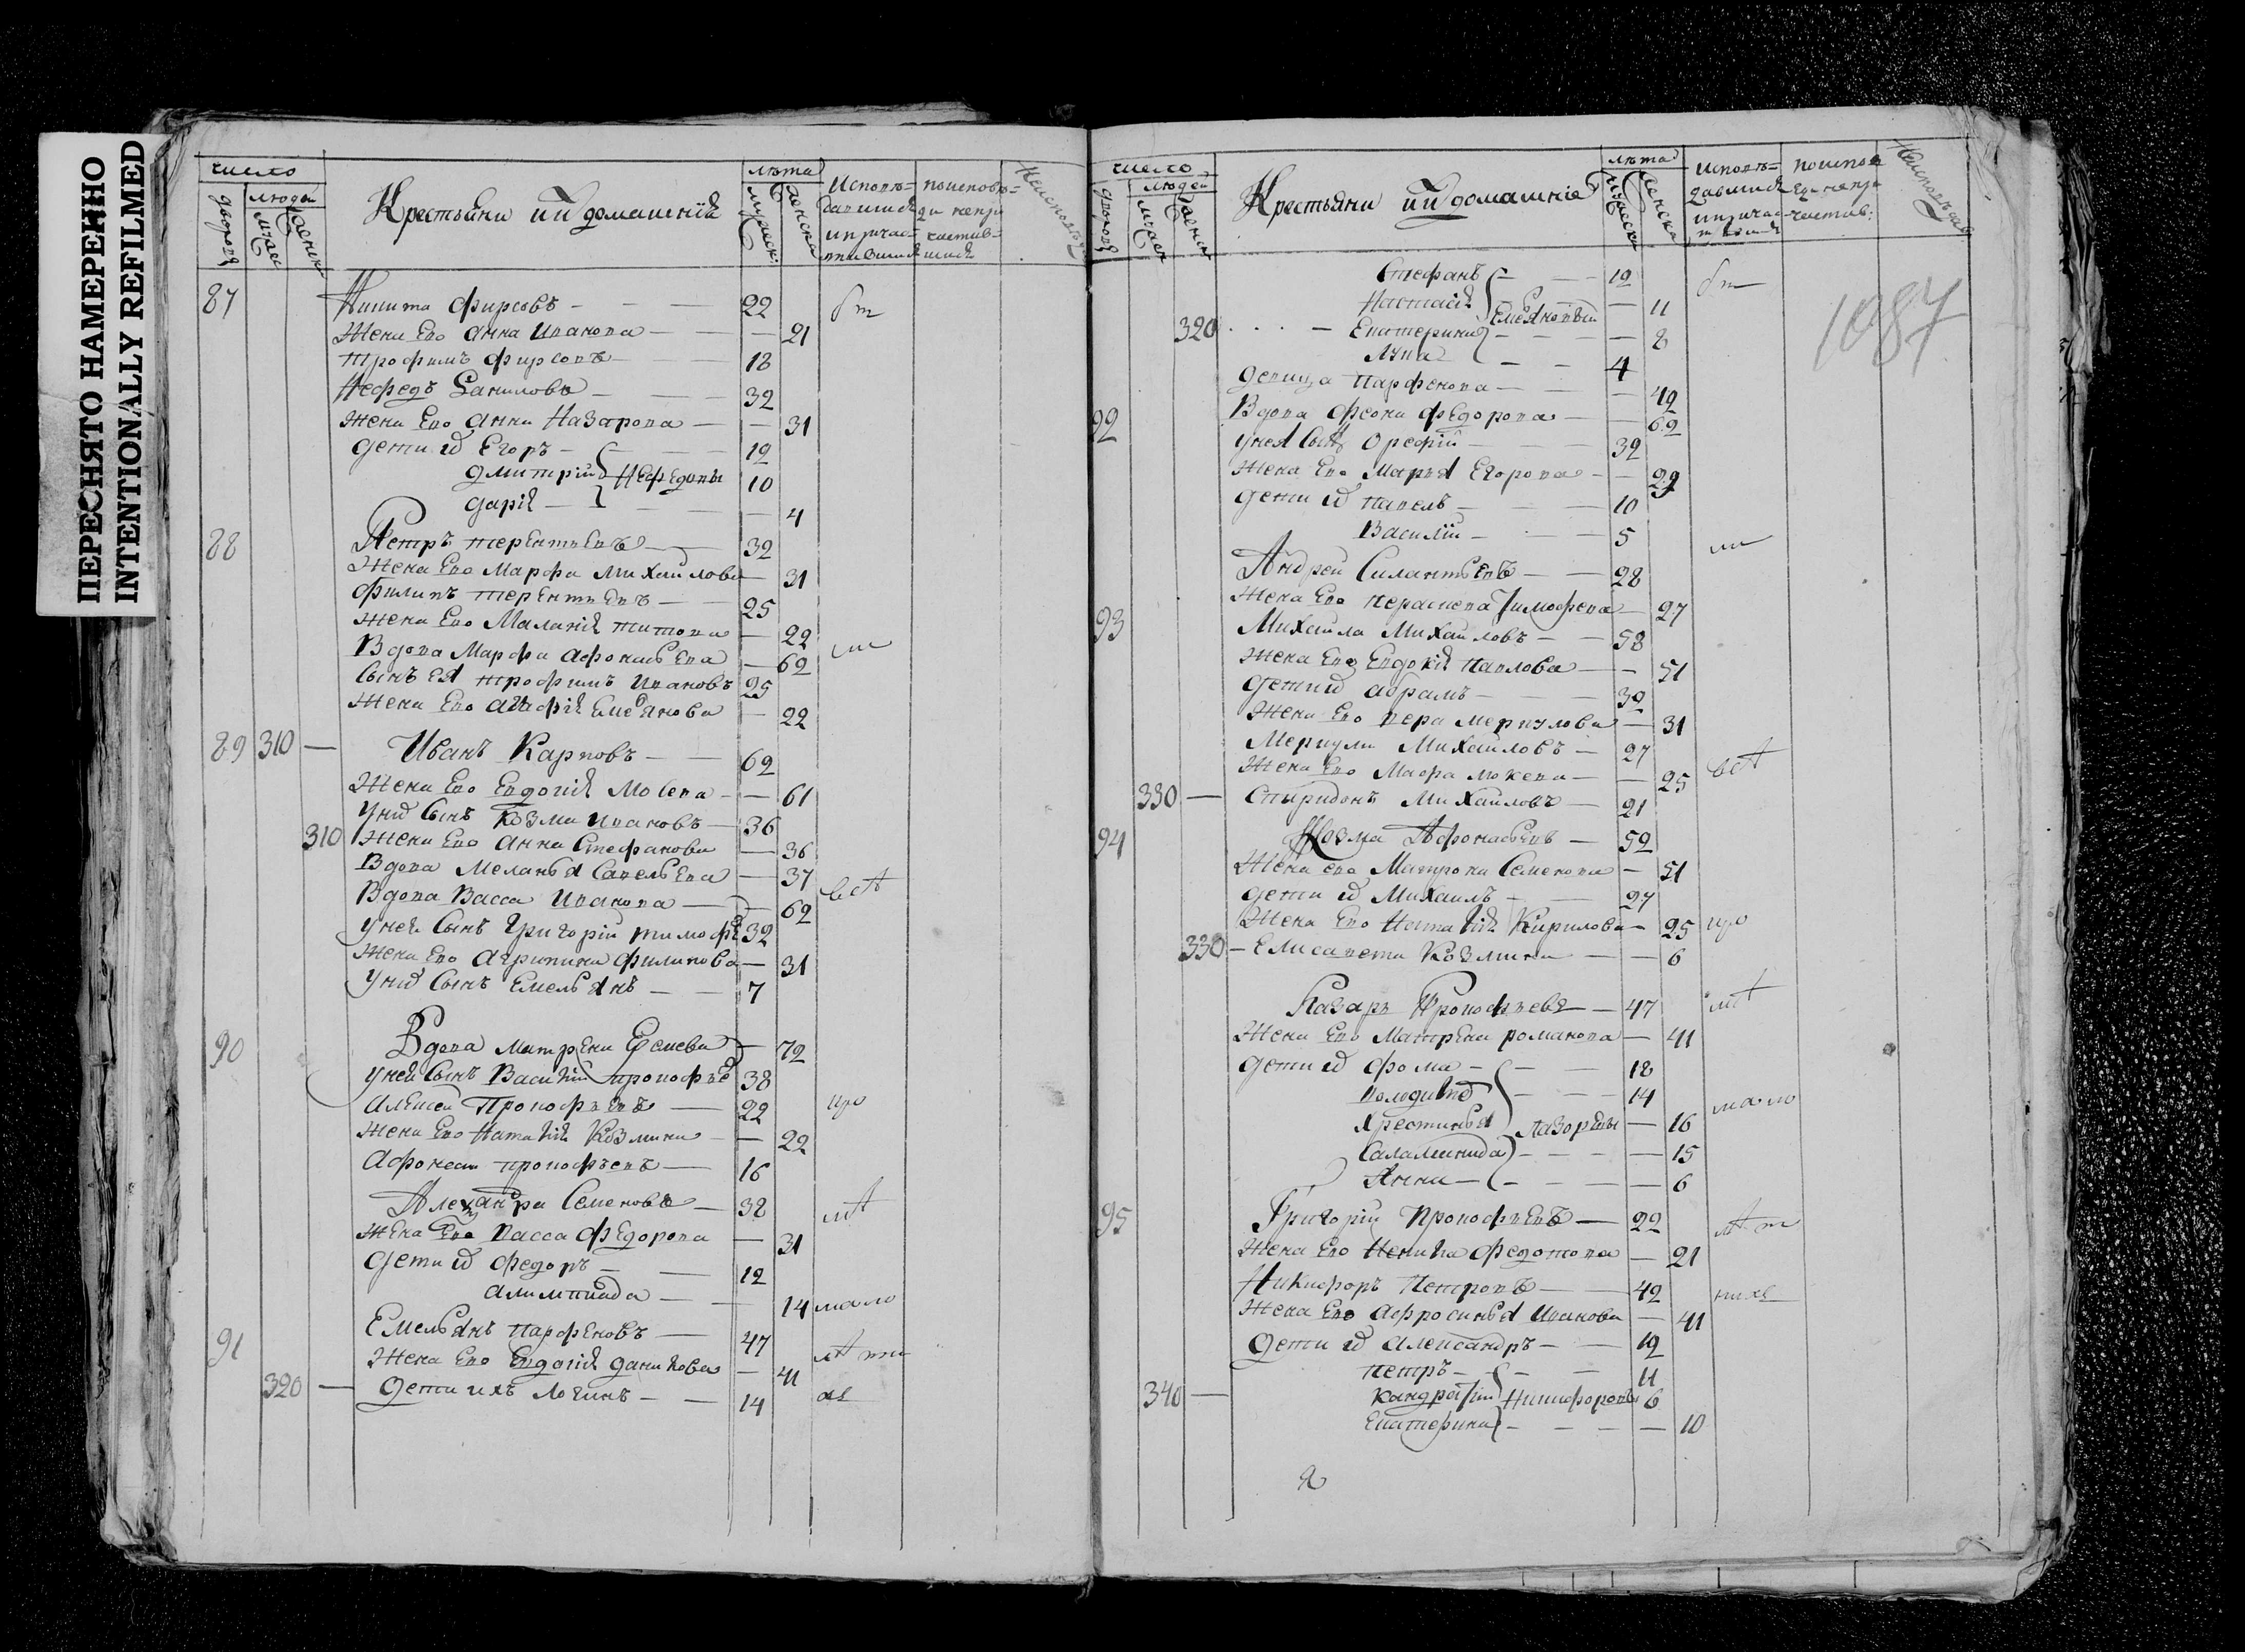 ПЕРЕСНЯТО НАМЕРЕННО
INTENTIONALLY REFILMED
число
дворовъ
людей
Крестьяни ии домашнiя
лѣта
87 Никита Фирсовъ 22
Жена Ево Анна Иванова 21
Трофимъ Фирсовъ 18
Нефедъ Даниловъ 32
Жена Ево Анна Назарова 31
Дети их Егоръ 12
Дмитрiй Нефедовы 10
Дарiя 4
88 Петръ Терентьевъ 32
Жена Ево Марфа Михайлова 31
Филипъ Терентьевъ 25
Жена Ево Маланiя Титова 22
Вдова Марфа Афонасьева 62
Сынъ ея Трофимъ Ивановъ 25
Жена Ево Агафiя Емельянова 22
89 310 — Иванъ Карповъ 62
Жена Ево Евдокiя Мосева 61
У них Сынъ Козма Ивановъ 36
310 Жена Ево Анна Стефанова 36
Вдова Меланья Савельева 37
Вдова Васса Иванова 62
У ней Сынъ Григорiй Тимофе 32
Жена Ево Агрипина Филипова 31
У них Сынъ Емельянъ 7
90 Вдова Матрена Есиева 72
У ней Сынъ Василiй Прокофье 38
Алексей Прокофьевъ 22
Жена Ево Наталiя Козмина 22
Афонасей Прокофьевъ 16
Алехандра Семеновъ 32
Жена Ево Васса Федорова 31
Дети их Федоръ 12
Алимпиада 14
91 Емельянъ Парфеновъ 47
Жена Ево Евдокiя Данилова 41
320 — Дети ихъ Логинъ 14
число
дворовъ
людей
Крестьяни ии домашнiе
лѣта
1087
Стефанъ 12
Настасiя Емельяновы 11
320 Екатерина 8
Лука 4
Девица Парфенова 42
92 Вдова Феона Федорова 62
У нея Сынъ Орефiй 32
Жена Ево Марья Егорова 29
Дети их Павелъ 10
Василiй 5
Андрей Силантьевъ 28
Жена Ево Пераскева Тимофева 27
93 Михайла Михайловъ 58
Жена Ево Евдокiя Павлова 51
Дети их Абрамъ 32
Жена Ево Вера Меркулова 31
Меркули Михайловъ 27
Жена Ево Мавра Мокева 25
330 — Спиридонъ Михайловъ 21
94 Козма Афонасьевъ 52
Жена ево Матрона Семенова 51
Дети их Михаилъ 27
Жена Ево Наталiя Кирилова 25
330 — Елисавета Козмина 6
Лазарь Прокофьевъ 47
Жена Ево Матрена Романова 41
Дети их Фома 18
Володимiръ 14
Хрестинья Лазоревы 16
Саламанида 15
Анна 6
95 Григорiй Прокофьевъ 22
Жена Ево Федотова 21
Никифоръ Петровъ 42
Жена Ево Афросинья Иванова 41
Дети их Александръ 12
Петръ 11
340 — Кандратiй Никифоровы 6
Екатерина 10